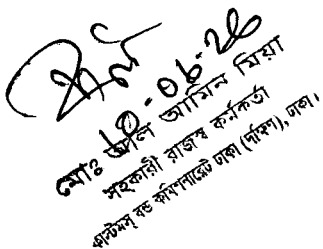 ১০-০৬-২৬
মোঃ আল আমিন মিয়া
সহকারী রাজস্ব কর্মকর্তা
কাস্টমস্ বন্ড কমিশনারেট ঢাকা (দক্ষিণ), ঢাকা।